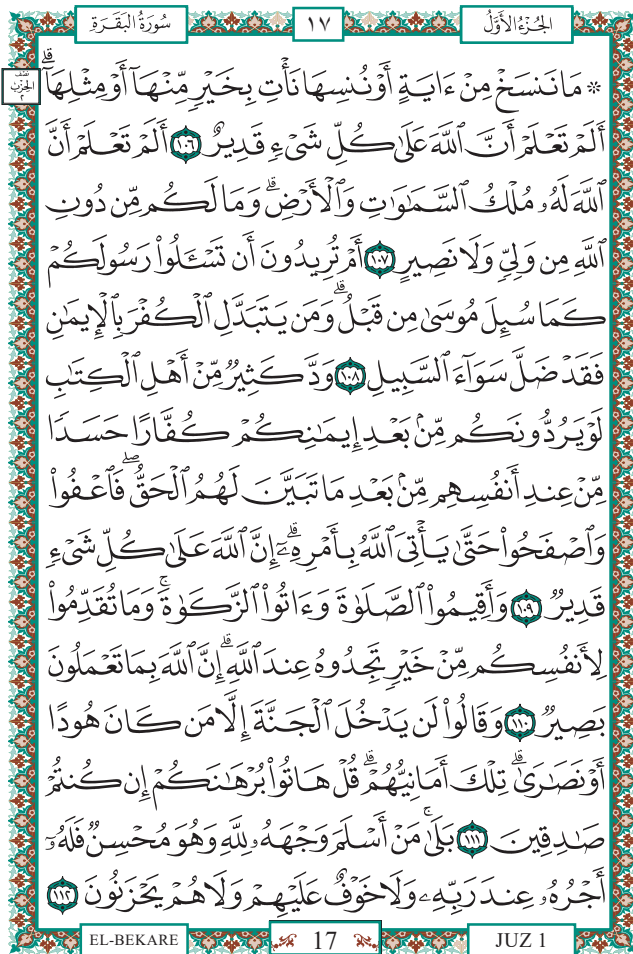 الجُزْءُ الأَوَّلُ
١٧
سُورَةُ البَقَرَةِ
نصف الحزب ٢
۞ مَا نَنسَخْ مِنْ ءَايَةٍ أَوْ نُنسِهَا نَأْتِ بِخَيْرٍ مِّنْهَآ أَوْ مِثْلِهَآۗ
أَلَمْ تَعْلَمْ أَنَّ ٱللَّهَ عَلَىٰ كُلِّ شَىْءٍ قَدِيرٌ ١٠٦ أَلَمْ تَعْلَمْ أَنَّ
ٱللَّهَ لَهُۥ مُلْكُ ٱلسَّمَٰوَٰتِ وَٱلْأَرْضِۗ وَمَا لَكُم مِّن دُونِ
ٱللَّهِ مِن وَلِىٍّ وَلَا نَصِيرٍ ١٠٧ أَمْ تُرِيدُونَ أَن تَسْـَٔلُوا۟ رَسُولَكُمْ
كَمَا سُئِلَ مُوسَىٰ مِن قَبْلُۗ وَمَن يَتَبَدَّلِ ٱلْكُفْرَ بِٱلْإِيمَٰنِ
فَقَدْ ضَلَّ سَوَآءَ ٱلسَّبِيلِ ١٠٨ وَدَّ كَثِيرٌ مِّنْ أَهْلِ ٱلْكِتَٰبِ
لَوْ يَرُدُّونَكُم مِّنۢ بَعْدِ إِيمَٰنِكُمْ كُفَّارًا حَسَدًا
مِّنْ عِندِ أَنفُسِهِم مِّنۢ بَعْدِ مَا تَبَيَّنَ لَهُمُ ٱلْحَقُّۖ فَٱعْفُوا۟
وَٱصْفَحُوا۟ حَتَّىٰ يَأْتِىَ ٱللَّهُ بِأَمْرِهِۦٓۗ إِنَّ ٱللَّهَ عَلَىٰ كُلِّ شَىْءٍ
قَدِيرٌ ١٠٩ وَأَقِيمُوا۟ ٱلصَّلَوٰةَ وَءَاتُوا۟ ٱلزَّكَوٰةَۚ وَمَا تُقَدِّمُوا۟
لِأَنفُسِكُم مِّنْ خَيْرٍ تَجِدُوهُ عِندَ ٱللَّهِۗ إِنَّ ٱللَّهَ بِمَا تَعْمَلُونَ
بَصِيرٌ ١١٠ وَقَالُوا۟ لَن يَدْخُلَ ٱلْجَنَّةَ إِلَّا مَن كَانَ هُودًا
أَوْ نَصَٰرَىٰۗ تِلْكَ أَمَانِيُّهُمْۗ قُلْ هَاتُوا۟ بُرْهَٰنَكُمْ إِن كُنتُمْ
صَٰدِقِينَ ١١١ بَلَىٰۚ مَنْ أَسْلَمَ وَجْهَهُۥ لِلَّهِ وَهُوَ مُحْسِنٌ فَلَهُۥٓ
أَجْرُهُۥ عِندَ رَبِّهِۦ وَلَا خَوْفٌ عَلَيْهِمْ وَلَا هُمْ يَحْزَنُونَ ١١٢
EL-BEKARE
17
JUZ 1